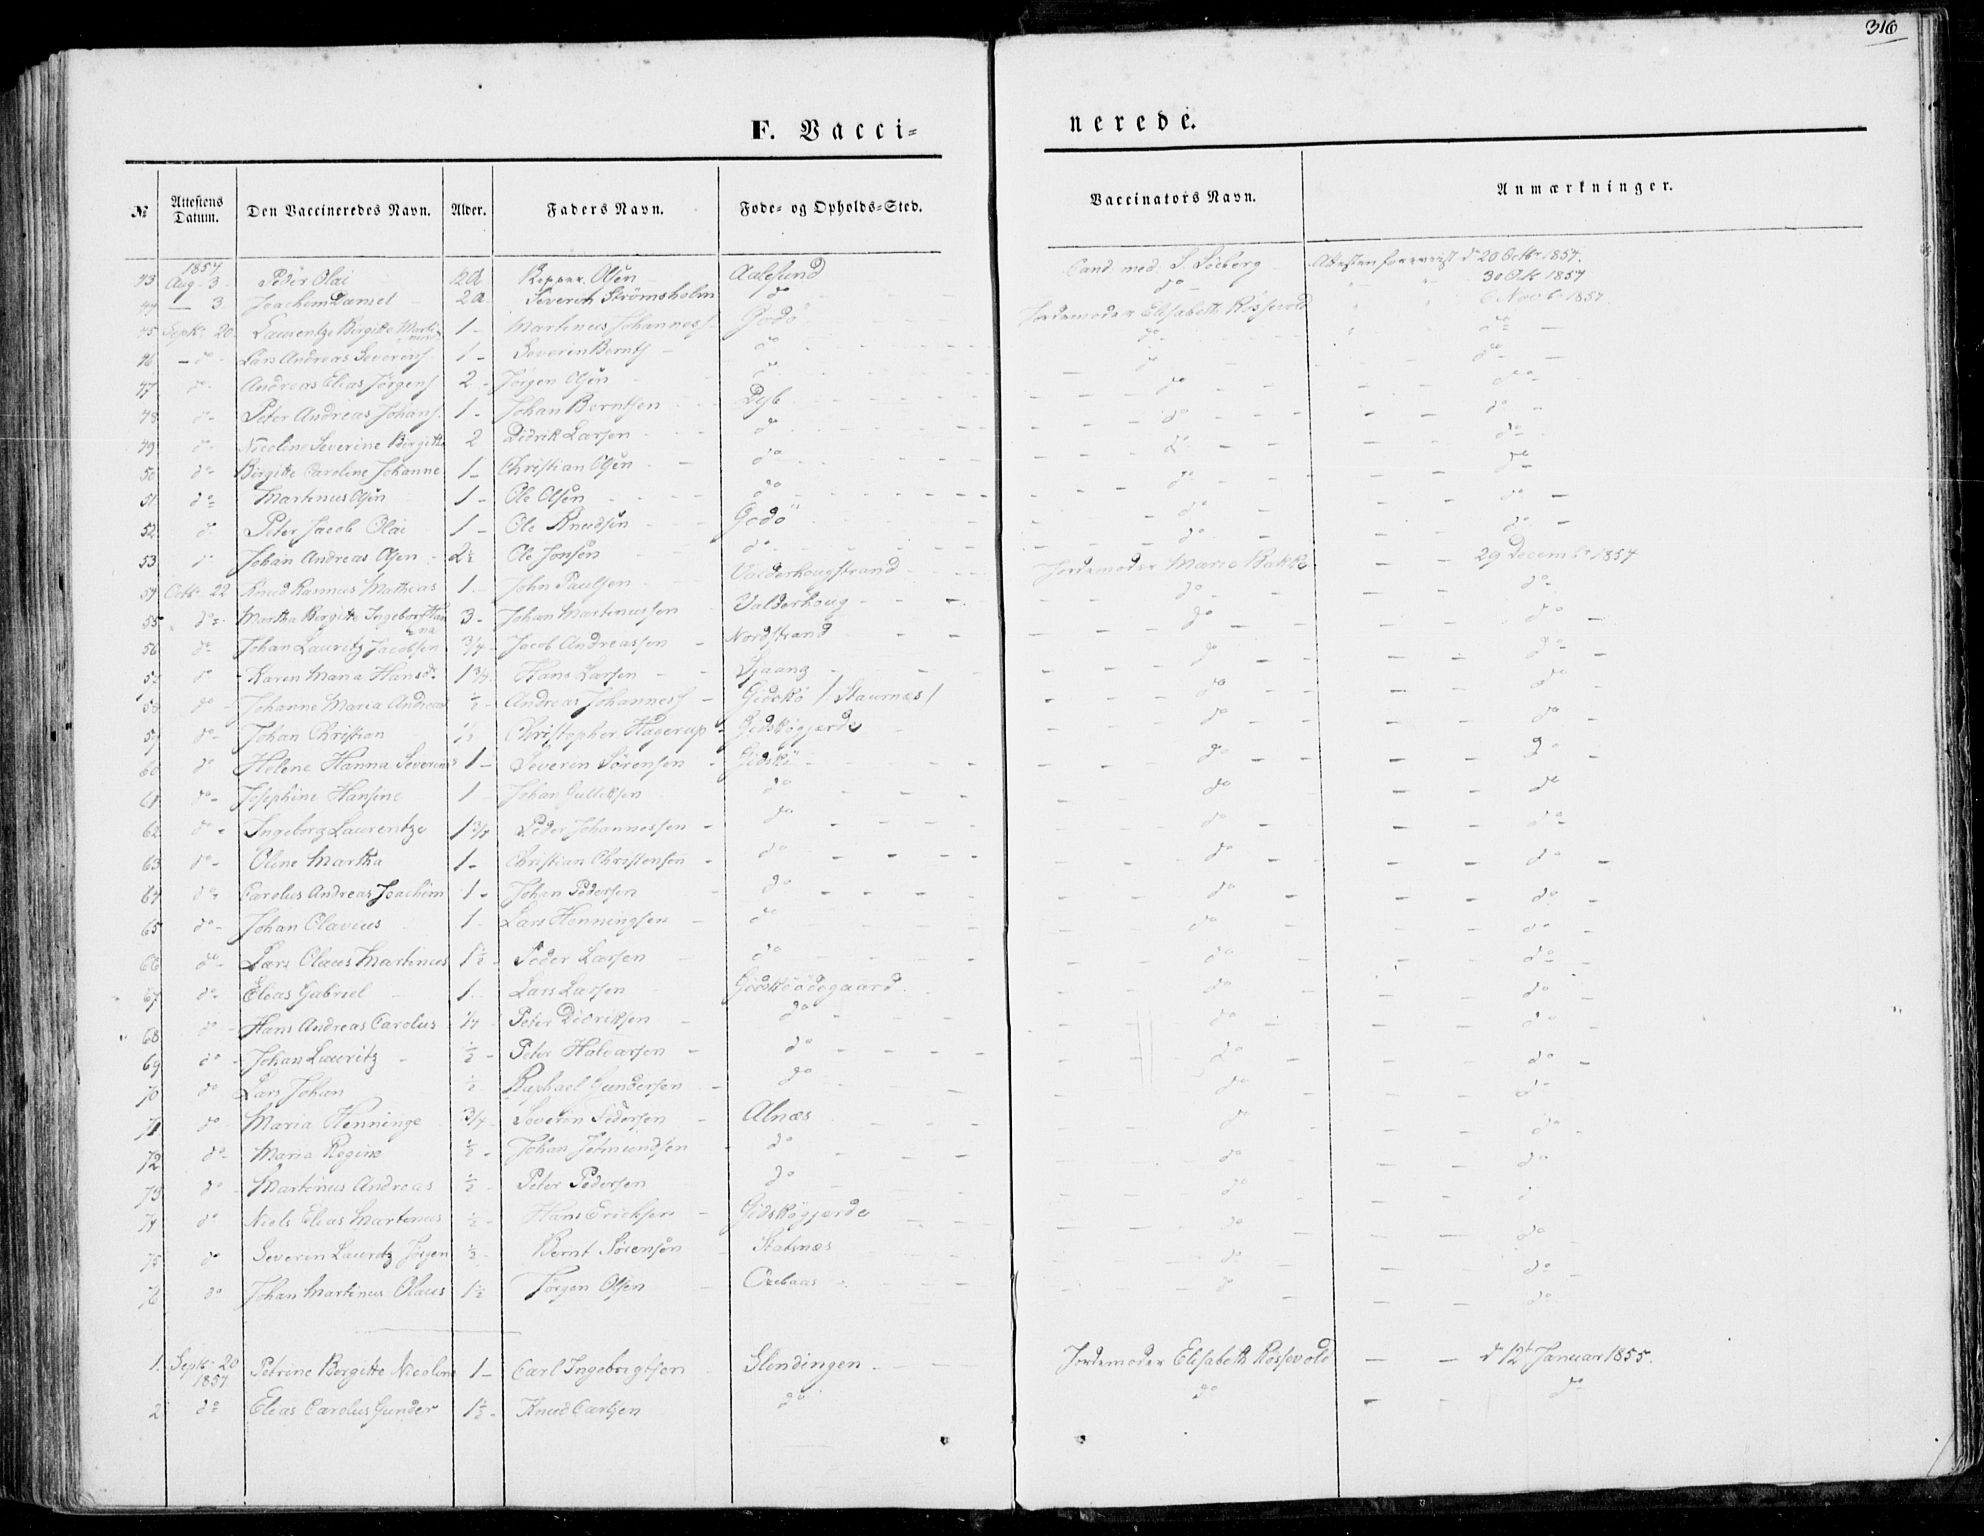 316
F. Vacci= nerede.
No Attestens Datum. Den Vaccineredes Navn. Alder. Faders Navn. Føde- og Opholds-Sted. Vaccinators Navn. Anmærkninger.
1854
43 Aug. 3 Peder Olai Olsen Aalesund Cand. med. S. Söeberg Attesten foreviist d 20 Octbr 1854.
44 — 3 Joachim Daniel 2 a Severin Strømsholm do do 30 Ok 1854
45 Septr 20 Laurentze Birgitte 1 - Martinus Johanness Godö Jordemoder Elisabeth Røssevold 6 Novbr 1854.
46 — do Lars Andreas Severens 1 - Severin Bernts do do do
47 do Andreas Elias Jørgens 2 - Jørgen Olsen do do do
48 do Peter Andreas Johans. 1 - Johan Berntsen Dyb do do
49 do Nicoline Severine Birgitte 2 Didrik Larsen do do do
50 do Birgitte Caroline Johanne 1 - Christian Olsen do do do
51 do Martinus Olsen 1 - Ole Olsen do do do
52 do Peter Jacob Olai 1 - Ole Knudsen Godö do do
53 do Johan Andreas Olsen 2½ Ole Jonsen do do do
54 Octb 22 Knud Rasmus Mathias 1 - John Paulsen Valderhougstrand Jordemoder Marie Bakke 29 Decembr 1854
55 do Martha Birgitte Ingeborg Hanna 3 - Johan Martinussen Valderhoug do do
56 do Johan Lauritz Jacobsen 3/4 Jacob Andreassen Nordstrand do do
57 do Karen Maria Hansdr 1 3/4 Hans Larsen do do
58 do Johanne Maria Andreas ½ - Andreas Johanness Gidskö / Staurnæs / do do
59 do Johan Christian ½ Christopher Hagerup Gidskögjerde do do
60 do Helene Hanna Severine 1 - Severin Sørensen Gidskö do do
61 do Josephine Hansine 1 Johan Gulliksen do do do
62 do Ingeborg Laurentze 1 3/4 Peder Johannessen do do do
63 do Oline Martha 1 - Christian Christensen do do do
64 do Carolus Andreas Joachim 1 - Johan Pedersen do do do
65 do Johan Olavius 1 - Lars Henningsen do do do
66 do Lars Olaus Martinus 1½ - Peder Larsen do do do
67 do Elias Gabriel 1 - Lars Larsen Gidsköödegaard do do
68 do Hans Andreas Carolus 1/4 - Peter Didriksen do do do
69 do Johan Lauritz ½ - Peter Halvorsen do do do
70 do Lars Johan ½ Raphael Gundersen do do do
71 do Maria Henninge 3/4 - Severin Pedersen Alnæs do do
72 do Maria Regine ½ - Johan Jetmundsen do do do
73 do Martinus Andreas ½ - Peter Pedersen do do do
74 do Niels Elias Martinus ½ - Hans Ericksen Gidskögjerde do do
75 do Severin Lauritz Jørgen ½ - Bernt Sørensen do do
76 do Johan Martinus Olaus 1½ Jørgen Olsen do do
1. Septr 20 1854 Petrine Birgitte Nicoline 1 - Carl Ingebrigtsen Slindingen Jordemoder Elisabeth Røssevold d 12t Januar 1855.
2 do Elias Carolus Gunder 1½ - Knud Carlsen do do do